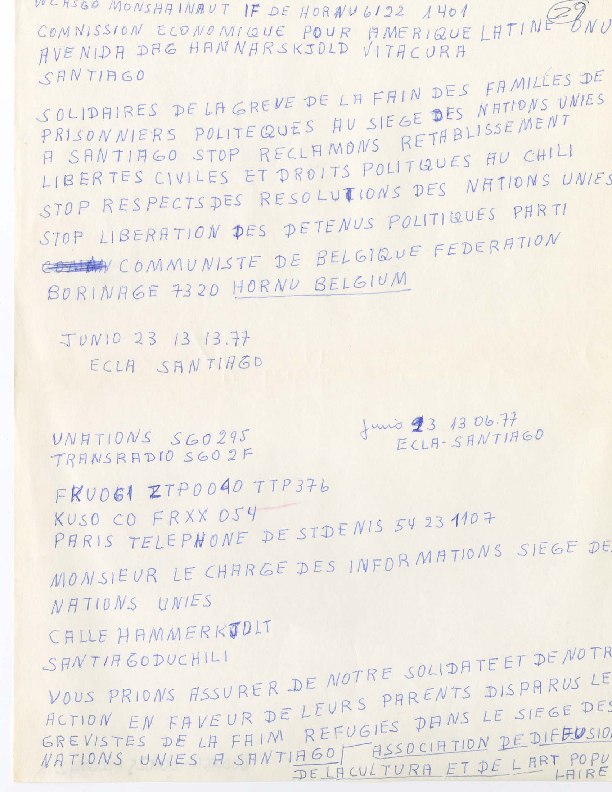 MONSHAINAUT IF DE HORNU 6122 1401
29
COMNISSION ECONOMIQUE POUR AMERIQUE LATINE ONU
AVENIDA DAG HANNARSKJOLD VITACURA
SANTIAGO
SOLIDAIRES DE LA GREVE DE LA FAIN DES FAMILLES DE
PRISONNIERS POLITEQUES AU SIEGE DES NATIONS UNIES
A SANTIAGO STOP RECLAMONS RETABLISSEMENT
LIBERTES CIVILES ET DROITS POLITIQUES AU CHILI
STOP RESPECTS DES RESOLUTIONS DES NATIONS UNIES
STOP LIBERATION DES DETENUS POLITIQUES PARTI
COMMUNISTE DE BELGIQUE FEDERATION
BORINAGE 7320 HORNU BELGIUM
JUNIO 23 13 13.77
ECLA SANTIAGO
UNATIONS SGO295
Junio 23 13 06.77
TRANSRADIO SGO2F
ECLA-SANTIAGO
FKU061 ZTP0040 TTP376
KUSO CO FRXX 054
PARIS TELEPHONE DE STDENIS 54 23 1107
MONSIEUR LE CHARGE DES INFORMATIONS SIEGE DE
NATIONS UNIES
CALLE HAMMERKJOLT
SANTIAGODUCHILI
VOUS PRIONS ASSURER DE NOTRE SOLIDATE ET DE NOTR
ACTION EN FAVEUR DE LEURS PARENTS DISPARUS LE
GREVISTES DE LA FAIM REFUGIES DANS LE SIEGE DES
NATIONS UNIES A SANTIAGO ASSOCIATION DE DIFFUSION
DE LA CULTURA ET DE L ART POPU
LAIRE